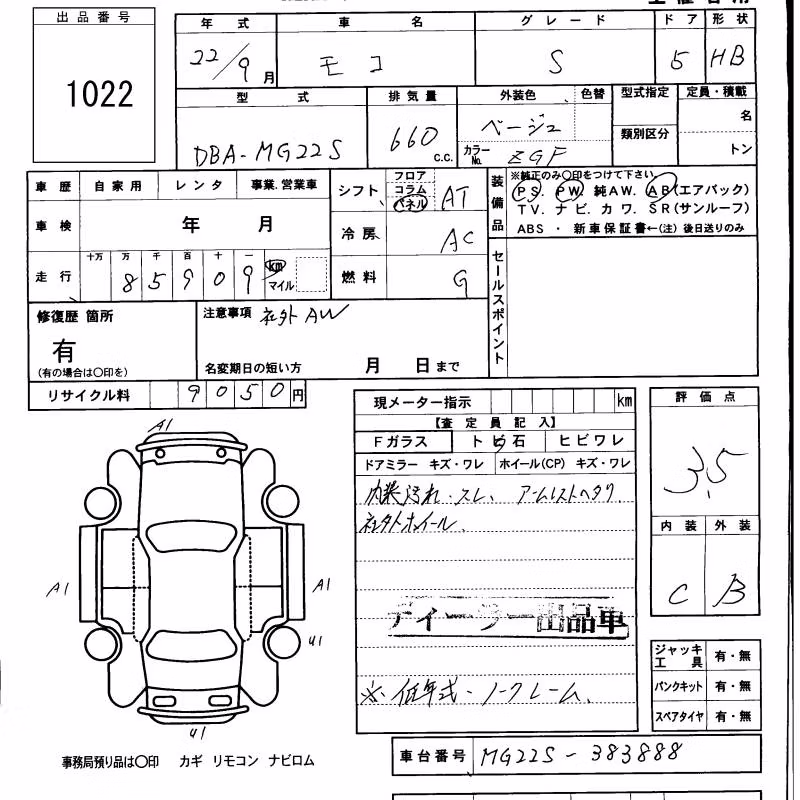 出品番号
1022
年式 車名 グレード ドア 形状
22/9月 モコ S 5 HB
型式 排気量 外装色 色替 型式指定 定員・積載
DBA-MG22S 660c.c. ベージュ 類別区分 名
カラーNo. ZGF トン
車歴 自家用 レンタ 事業.営業車
車検 年 月
走行 十万 万 千 百 十 一 km マイル
85909
シフト フロア コラム パネル AT
冷房 AC
燃料 G
装備品 ※純正のみ○印をつけて下さい。
PS. PW. 純AW. AB(エアバック)
TV. ナビ. カワ. SR(サンルーフ)
ABS ・ 新車保証書←(注)後日送りのみ
セールスポイント
修復歴 箇所
有
(有の場合は○印を)
注意事項 社外AW
名変期日の短い方 月 日まで
リサイクル料 9050円
現メーター指示 km
【査定員記入】
Fガラス トビ石 ヒビワレ
ドアミラー キズ・ワレ ホイール(CP) キズ・ワレ
内装汚れ・スレ、アームレストヘタリ
社外ホイール、
ディーラー出品車
※低年式・ノークレーム、
評価点
3.5
内装 外装
C B
A1
A1 A1
U1
U1
ジャッキ工具 有・無
パンクキット 有・無
スペアタイヤ 有・無
事務局預り品は○印 カギ リモコン ナビロム
車台番号 MG22S-383888